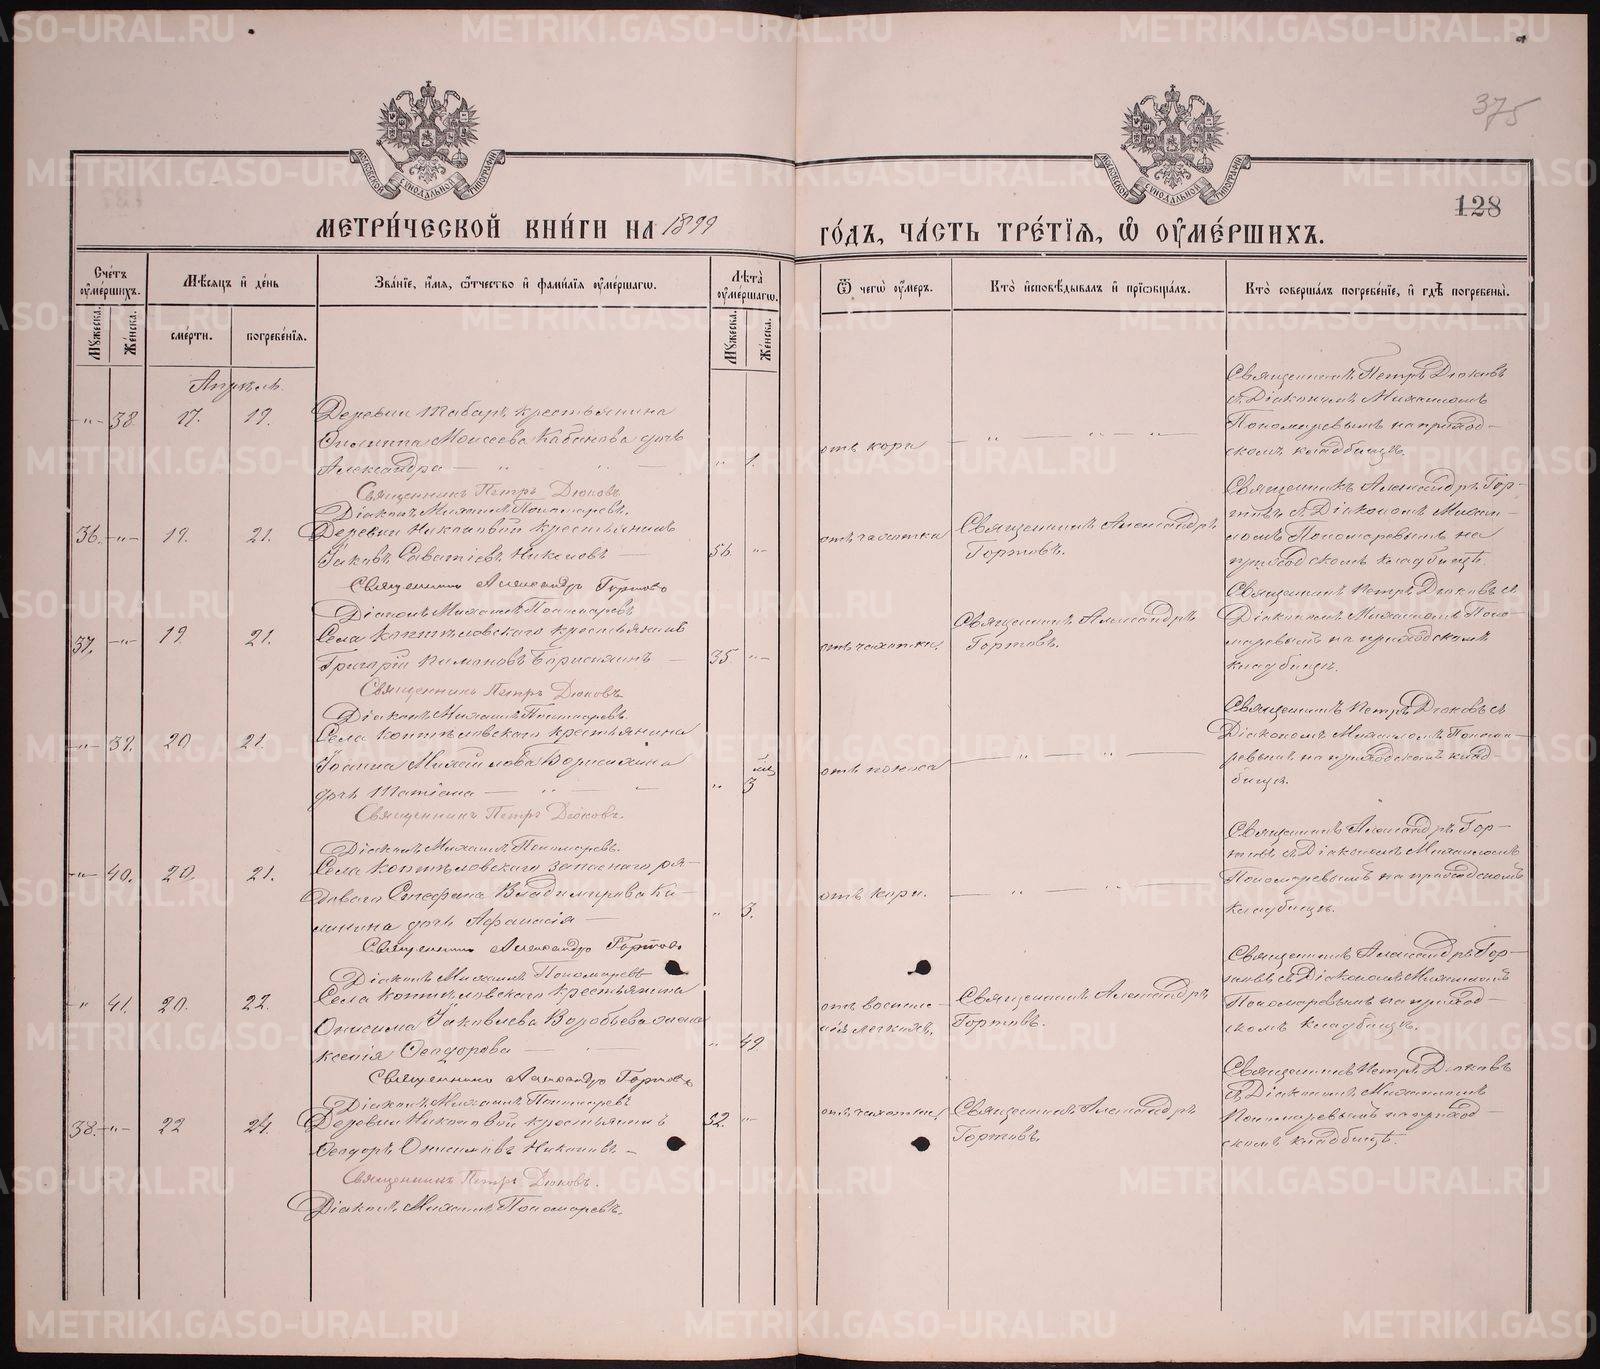 375
128
МЕТРИ́ЧЕСКОЙ КНИ́ГИ НА 1899
ГО́ДЪ, ЧА́СТЬ ТРЕ́ТЇѦ, Ѡ҆ ОУ҆МЕ́РШИХЪ.
МОСКОВСКОЙ СѴНОДАЛЬНОЙ ТИПОГРАФІИ
МОСКОВСКОЙ СѴНОДАЛЬНОЙ ТИПОГРАФІИ
Сче́тъ оу҆ме́ршихъ.
Мѣ́сяцъ и҆ де́нь
Зва́нїе, и҆́мя, ѻ҆́тчество и҆ фами́лїя оу҆ме́ршагѡ.
Лѣта̀ оу҆ме́ршагѡ.
Ѿ чегѡ̀ оу҆́меръ.
Кто̀ и҆сповѣ́дывалъ и҆ прїѡбща́лъ.
Кто̀ соверша́лъ погребе́нїе, и҆ гдѣ̀ погребены̀.
Мꙋ́жеска.
Же́нска.
сме́рти.
погребе́нїя.
Мꙋ́жеска.
Же́нска.
Апрѣль.
-"- 38. 17. 19. Деревни Табаръ крестьянина
Филиппа Моисеева Кабанова дочь
Александра — " " — " 1.
Священникъ Петръ Дюковъ
Діаконъ Михаилъ Пономаревъ.
отъ кори — " — " — "
Священникъ Петръ Дюковъ
с. Діакономъ Михаиломъ
Пономаревымъ на приход-
скомъ кладбищѣ.
36. -"- 19. 21. Деревни Никоновой крестьянинъ
Іаковъ Саватіевъ Никоновъ — 56. "-
Священникъ Александръ Гортовъ
Діаконъ Михаилъ Пономаревъ
отъ чахотки
Священникъ Александръ
Гортовъ.
Священникъ Александръ Гор-
товъ с. Діакономъ Михаи-
ломъ Пономаревымъ на
приходскомъ кладбищѣ.
37. -"- 19 21. Села Коптѣловскаго крестьянинъ
Григорій Пимоновъ Борисихинъ — 35. "-
Священникъ Петръ Дюковъ
Діаконъ Михаилъ Пономаревъ.
отъ чахотки.
Священникъ Александръ
Гортовъ.
Священникъ Петръ Дюковъ съ
Діакономъ Михаиломъ Поно-
маревымъ на приходскомъ
кладбищѣ.
-"- 39. 20 21. Села Коптѣловскаго крестьянина
Іоанна Михаилова Борисихина
дочь Татіана — " — " 3 мѣ
Священникъ Петръ Дюковъ.
Діаконъ Михаилъ Пономаревъ.
отъ поноса — " — "
Священникъ Петръ Дюковъ съ
Діакономъ Михаиломъ Понома-
ревымъ на приходскомъ клад-
бищѣ.
-"- 40. 20. 21. Села Коптѣловскаго запаснаго ря-
доваго Стефана Владимирова Ка-
линина дочь Афанасія — " 3.
Священникъ Александръ Гортовъ
Діаконъ Михаилъ Пономаревъ
отъ кори. — " — "
Священникъ Александръ Гор-
товъ съ Діакономъ Михаиломъ
Пономаревымъ на приходскомъ
кладбищѣ.
" 41. 20. 22. Села Коптѣловскаго крестьянина
Онисима Іаковлева Воробьева жена
Ксенія Ѳеодорова — " 49.
Священникъ Александръ Гортовъ
Діаконъ Михаилъ Пономаревъ
отъ воспале-
нія легкихъ.
Священникъ Александръ
Гортовъ.
Священникъ Александръ Гор-
товъ съ Діакономъ Михаиломъ
Пономаревымъ на приход-
скомъ кладбищѣ.
38. -"- 22 24. Деревни Никоновой крестьянинъ
Ѳеодоръ Онисимовъ Никоновъ — 32. "-
Священникъ Петръ Дюковъ.
Діаконъ Михаилъ Пономаревъ.
отъ чахотки
Священникъ Александръ
Гортовъ.
Священникъ Петръ Дюковъ
съ Діакономъ Михаиломъ
Пономаревымъ на приход-
скомъ кладбищѣ.
METRIKI.GASO-URAL.RU